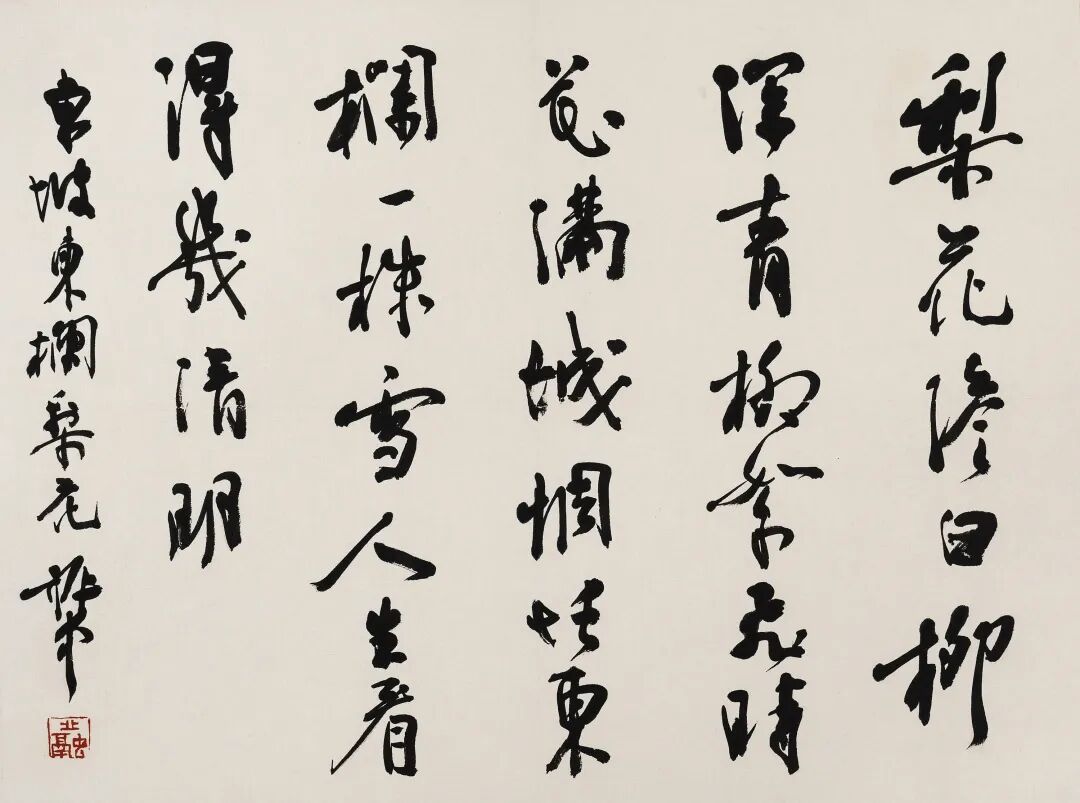 梨花澹白柳
深青柳絮飛晴
花滿城惆悵東
欄一株雪人生看
得幾清明
東坡東欄梨花